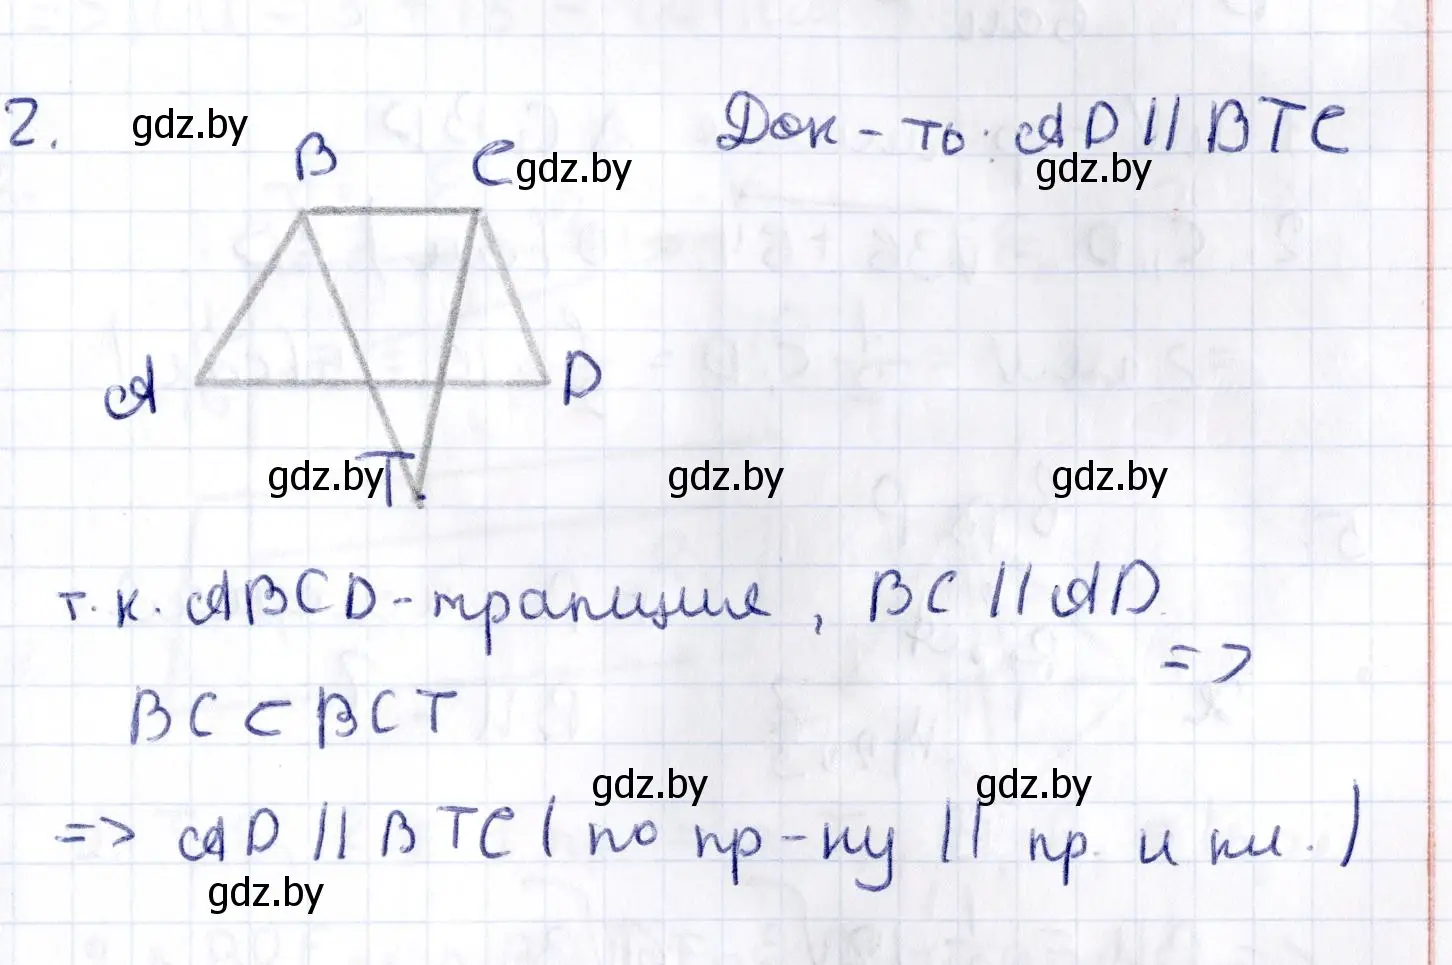 2. gdz.by Док-ть: AD || BTC
B C gdz.by gdz.by
A D
gdz.by T gdz.by gdz.by
т.к. ABCD - трапеция, BC || AD
=>
BC ⊂ BCT
gdz.by gdz.by
=> AD || BTC (по пр-ку || пр. и пл.)
gdz.by